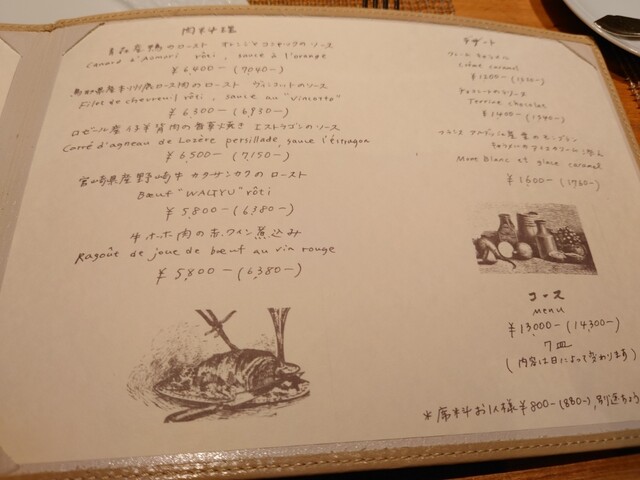 肉料理
青森産鴨のロースト オレンジとコニャックのソース
Canard d'Aomori rôti, sauce à l'orange
¥6,400-(7,040-)
ロース肉のロースト ヴィンコットのソース
Filet de chevreuil rôti, sauce au "vincotto"
¥6,300-(6,930-)
ロゼール産仔羊背肉の香草焼き エストラゴンのソース
Carré d'agneau de Lozère persillade, sauce l'éstragon
¥6,500-(7,150-)
宮崎県産野崎牛カタサンカクのロースト
Bœuf "WAGYU" rôti
¥5,800-(6,380-)
牛ホホ肉の赤ワイン煮込み
Ragoûte de joue de bœuf au vin rouge
¥5,800-(6,380-)
デザート
クレームキャラメル
Crème caramel
¥1200-(1320-)
Terrine chocolat
¥1400-(1540-)
Mont Blanc et glace caramel
¥1,600-(1760-)
コース
menu
¥13000-(14,300-)
7皿
(内容は日によって変わります)
*席料お1人様¥800-(880-),別途ちょう